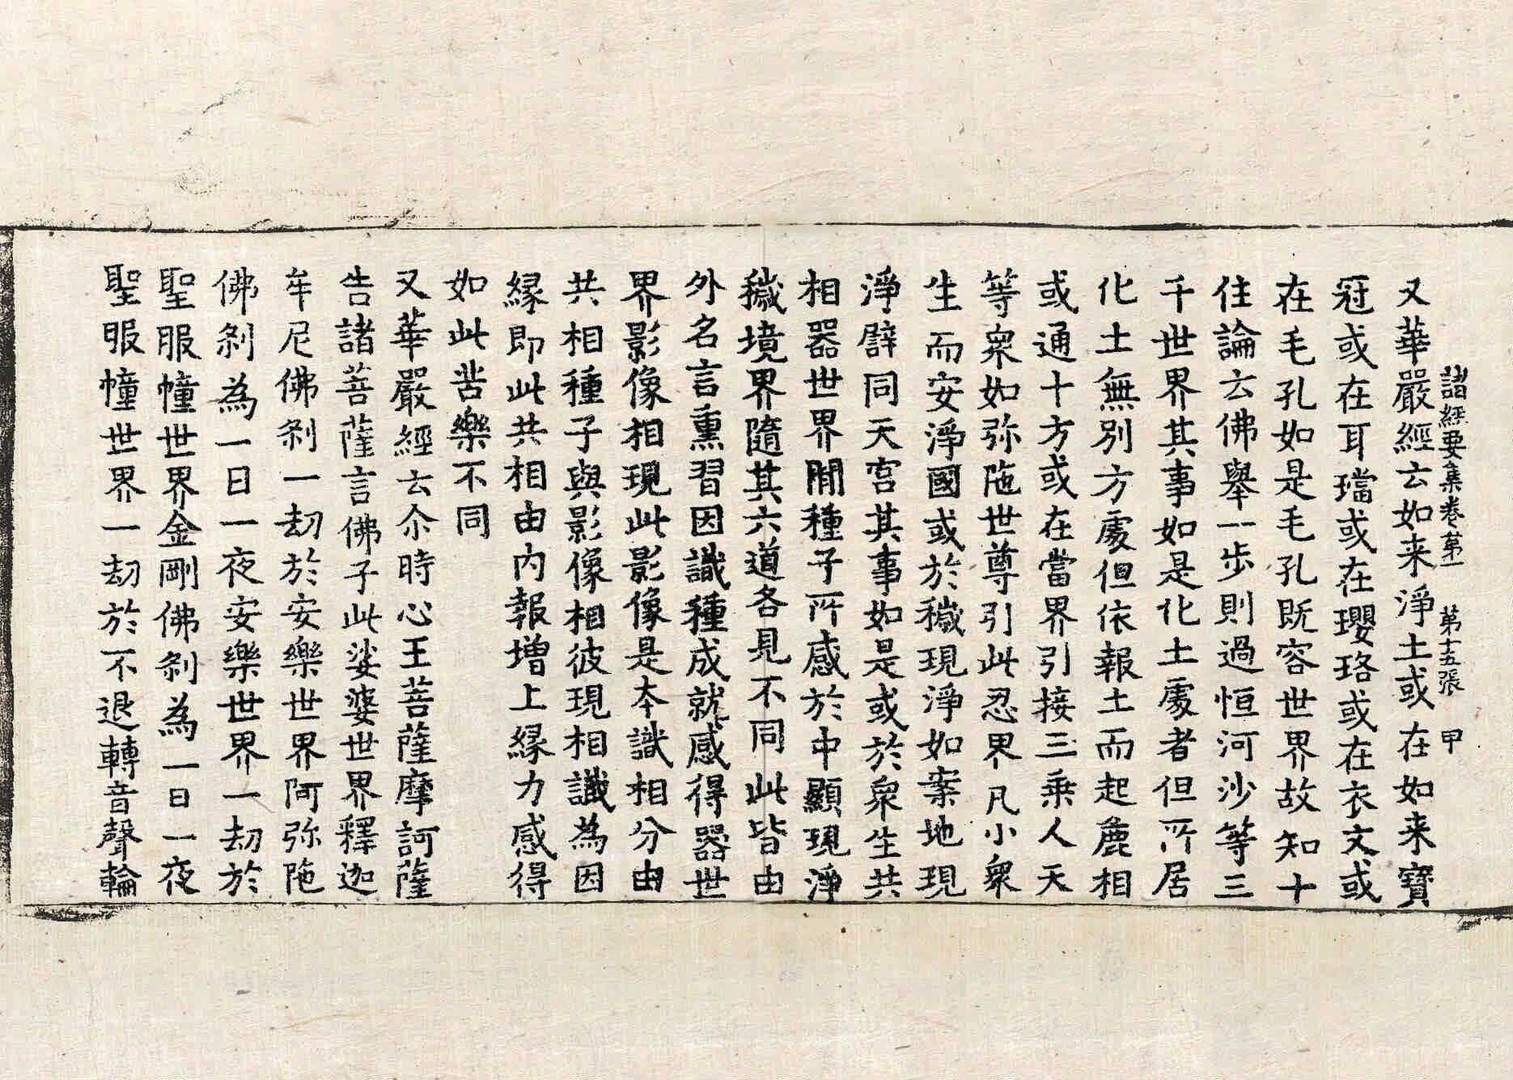 諸經要集卷第一　第十五張　甲
又華嚴經云如来淨土或在如来寶
冠或在耳璫或在瓔珞或在衣文或
在毛孔如是毛孔既容世界故知十
住論云佛舉一步則過恒河沙等三
千世界其事如是化土處者但所居
化土無別方處但依報土而起麁相
或通十方或在當界引接三乗人天
等衆如弥陁世尊引此忍界凡小衆
生而安淨國或於穢現淨如案地現
淨譬同天宮其事如是或於衆生共
相器世界間種子所感於中顯現淨
穢境界隨其六道各見不同此皆由
外名言熏習因識種成就感得器世
界影像相現此影像是本識相分由
共相種子與影像相彼現相識為因
縁即此共相由内報増上縁力感得
如此苦樂不同
又華嚴經云尒時心王菩薩摩訶薩
告諸菩薩言佛子此娑婆世界釋迦
牟尼佛刹一劫於安樂世界阿弥陁
佛刹為一日一夜安樂世界一劫於
聖服幢世界金剛佛刹為一日一夜
聖服幢世界一劫於不退轉音聲輪